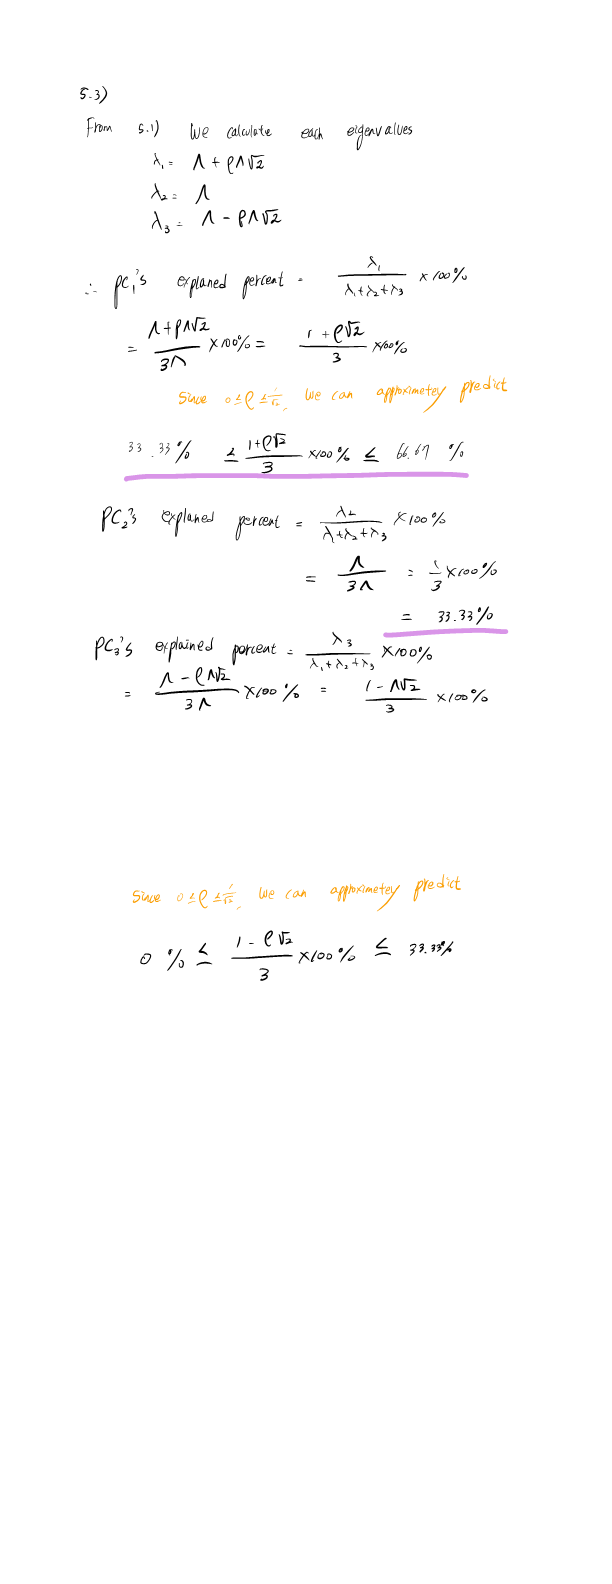 5.3)
From 5.1) We calculate each eigenvalues
λ₁ = Λ + ρΛ√2
λ₂ = Λ
λ₃ = Λ - ρΛ√2
∴ PC₁'s explaned percent = λ₁ / (λ₁+λ₂+λ₃) × 100%
= (Λ+ρΛ√2) / 3Λ × 100% = (1+ρ√2) / 3 × 100%
Since 0 ≤ ρ ≤ 1/√2, we can approximetey predict
33.33% ≤ (1+ρ√2) / 3 × 100% ≤ 66.67 %
PC₂'s explaned percent = λ₂ / (λ+λ₂+λ₃) × 100%
= Λ / 3Λ = 1/3 × 100%
= 33.33%
PC₃'s explained porcent = λ₃ / (λ₁+λ₂+λ₃) × 100%
= (Λ - ρΛ√2) / 3Λ × 100% = (1 - Λ√2) / 3 × 100%
Since 0 ≤ ρ ≤ 1/√2, we can approximetey predict
0 % ≤ (1 - ρ√2) / 3 × 100% ≤ 33.33%